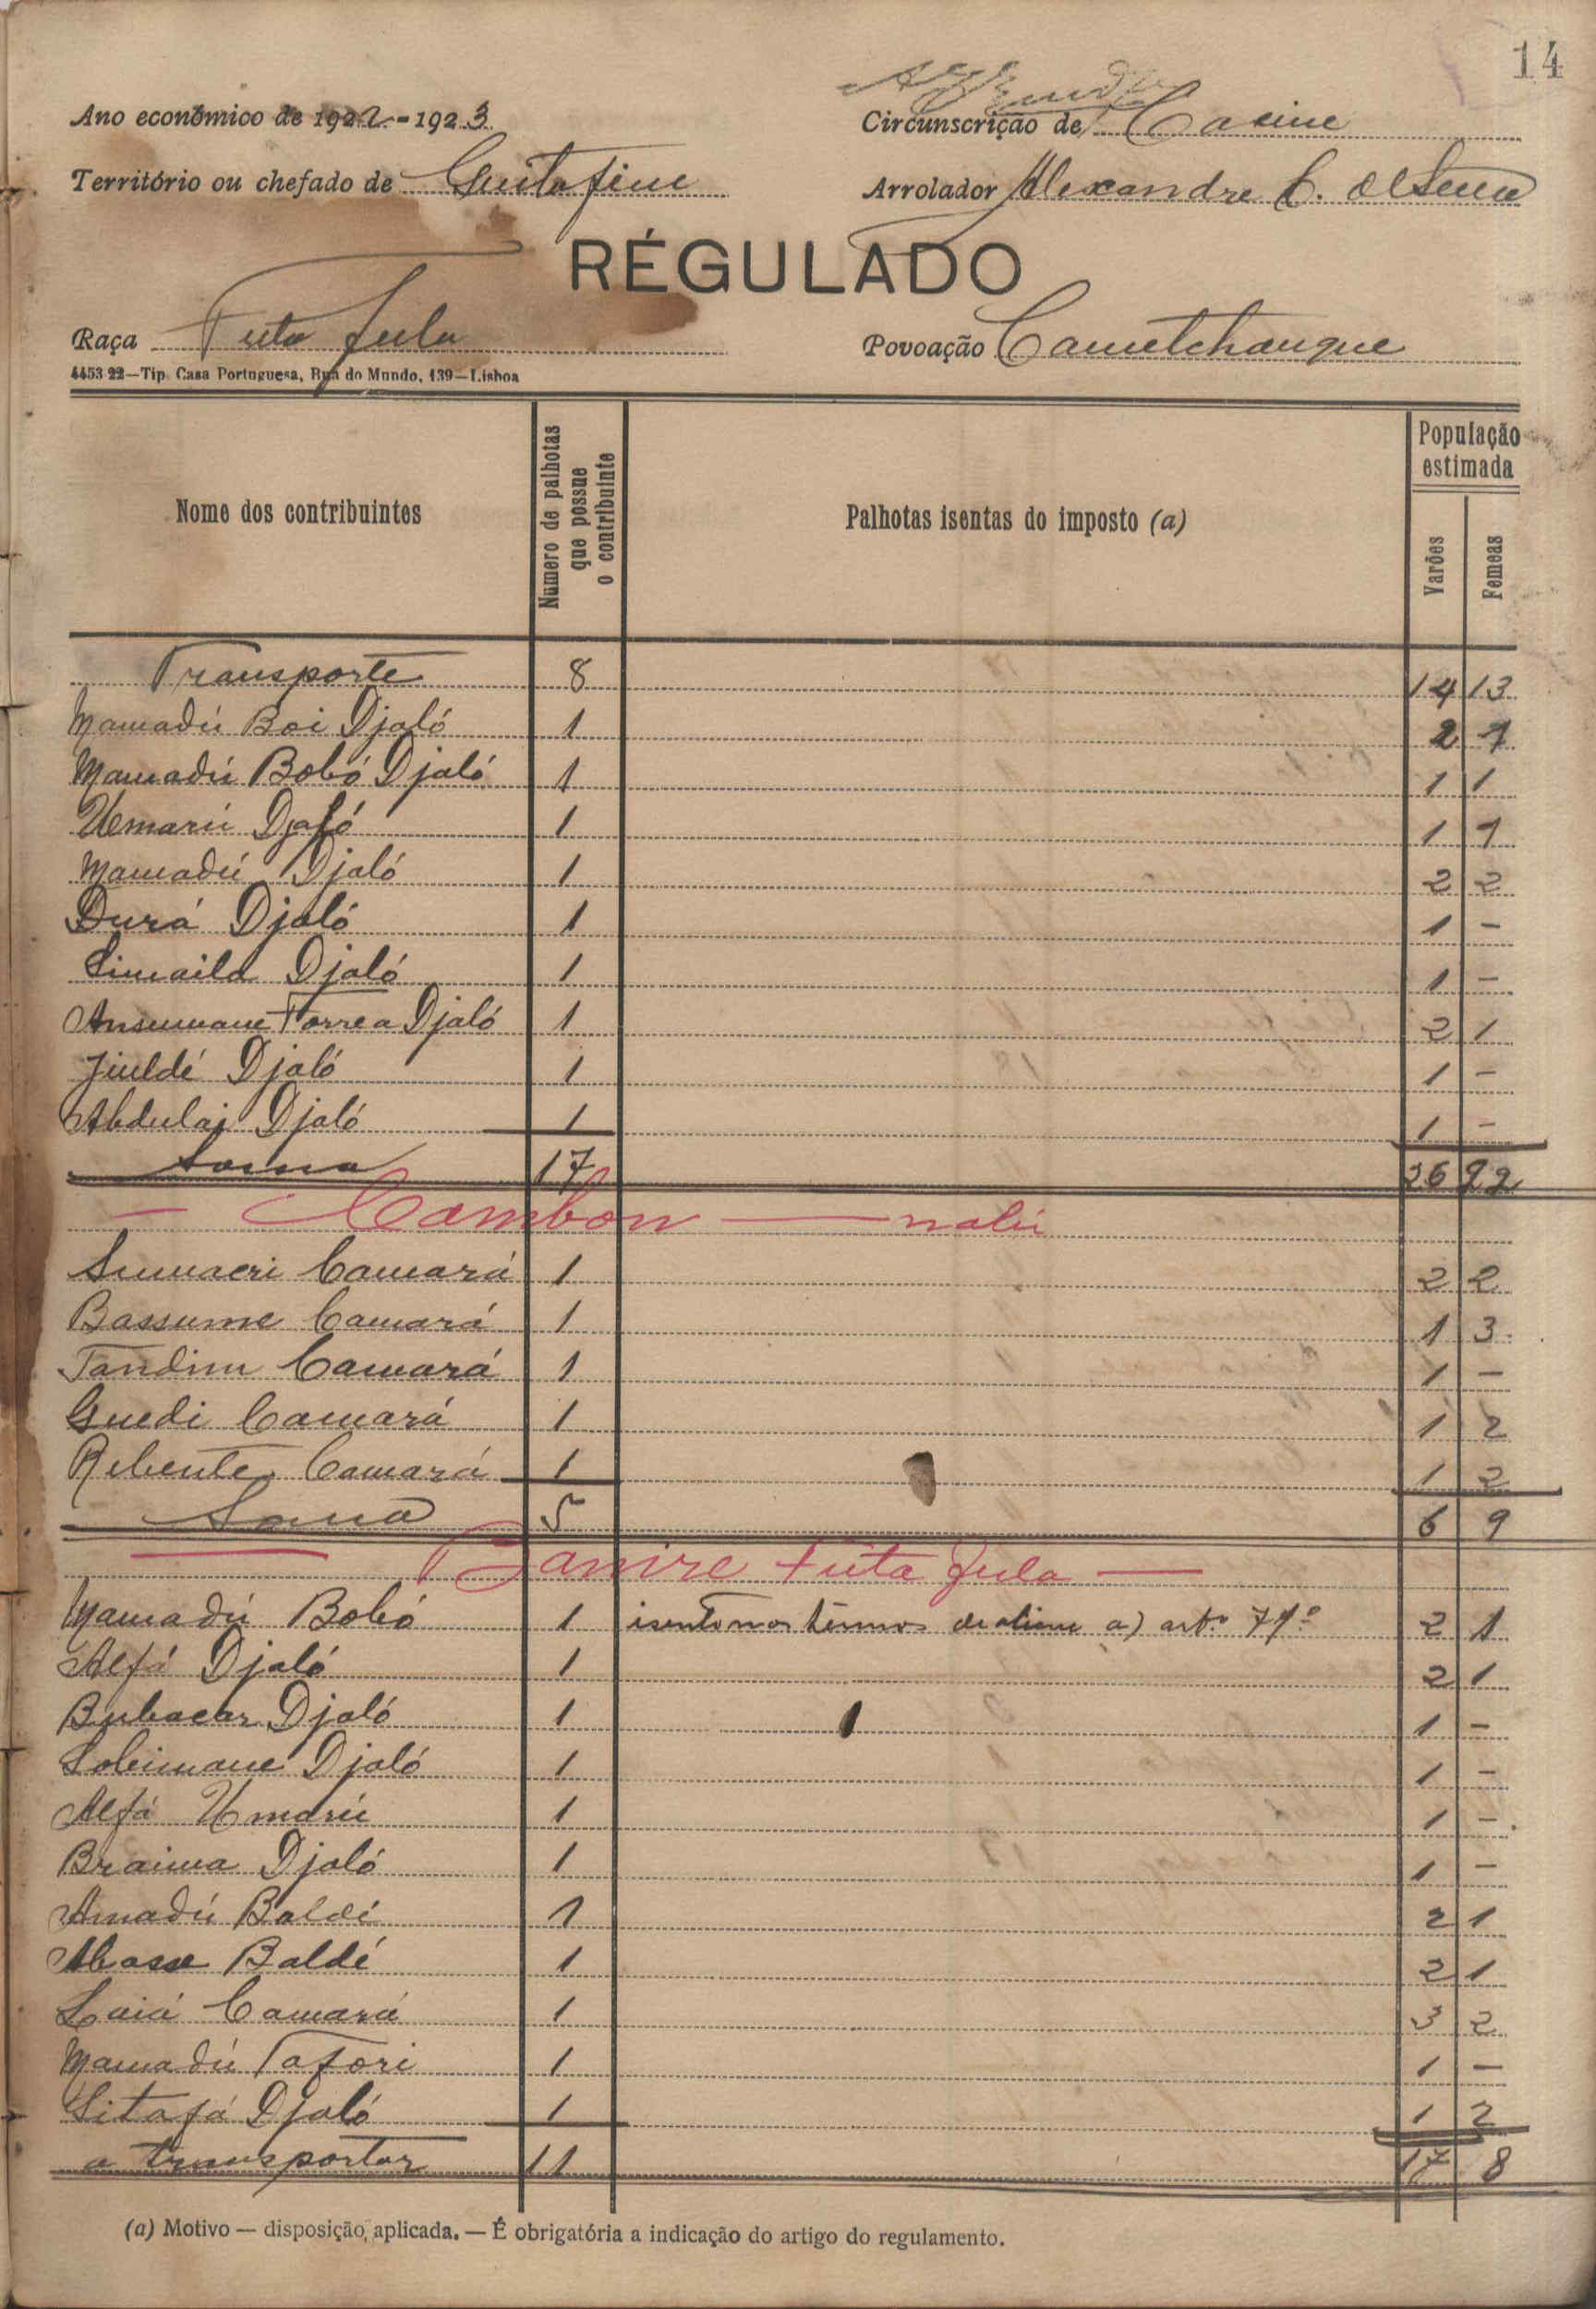 14
Ano económico de 1922-1923
Circunscrição de Cacine
Território ou chefado de Guitafine
Arrolador Alexandre C.
RÉGULADO
Raça Futa fula
Povoação Cametchangue
4453 22—Tip. Casa Portuguesa, Rua do Mundo, 139—Lisboa
Nome dos contribuintes
Número de palhotas que possue o contribuinte
Palhotas isentas do imposto (a)
População estimada
Varões
Femeas
Transporte 8 14 13
Mamadú Boi Djaló 1 2 1
Mamadú Bobó Djaló 1 1 1
Umarú Djaló 1 1 1
Mamadú Djaló 1 2 2
Durá Djaló 1 1 -
Simaila Djaló 1 1 -
Ansumane Torrea Djaló 1 2 1
Jiuldé Djaló 1 1 -
Abdulai Djaló 1 1 -
Soma 17 26 22
— Cambon — nalú
Sumacri Camará 1 2 2
Bassume Camará 1 1 3
Tandim Camará 1 1 -
Guedi Camará 1 1 2
Rebente Camará 1 1 2
Soma 5 6 9
— Banire Futa fula —
Mamadú Bobó 1 isento nos termos da alinea a) artº 7 2 1
Alfá Djaló 1 2 1
Bubacar Djaló 1 1 -
Soleimane Djaló 1 1 -
Alfá Umarú 1 1 -
Braima Djaló 1 1 -
Amadú Baldé 1 2 1
Abasse Baldé 1 2 1
Laiá Camará 1 3 2
Mamadú Tafori 1 1 -
Sitafá Djaló 1 1 2
a transportar 11 17 8
(a) Motivo — disposição, aplicada. — É obrigatória a indicação do artigo do regulamento.